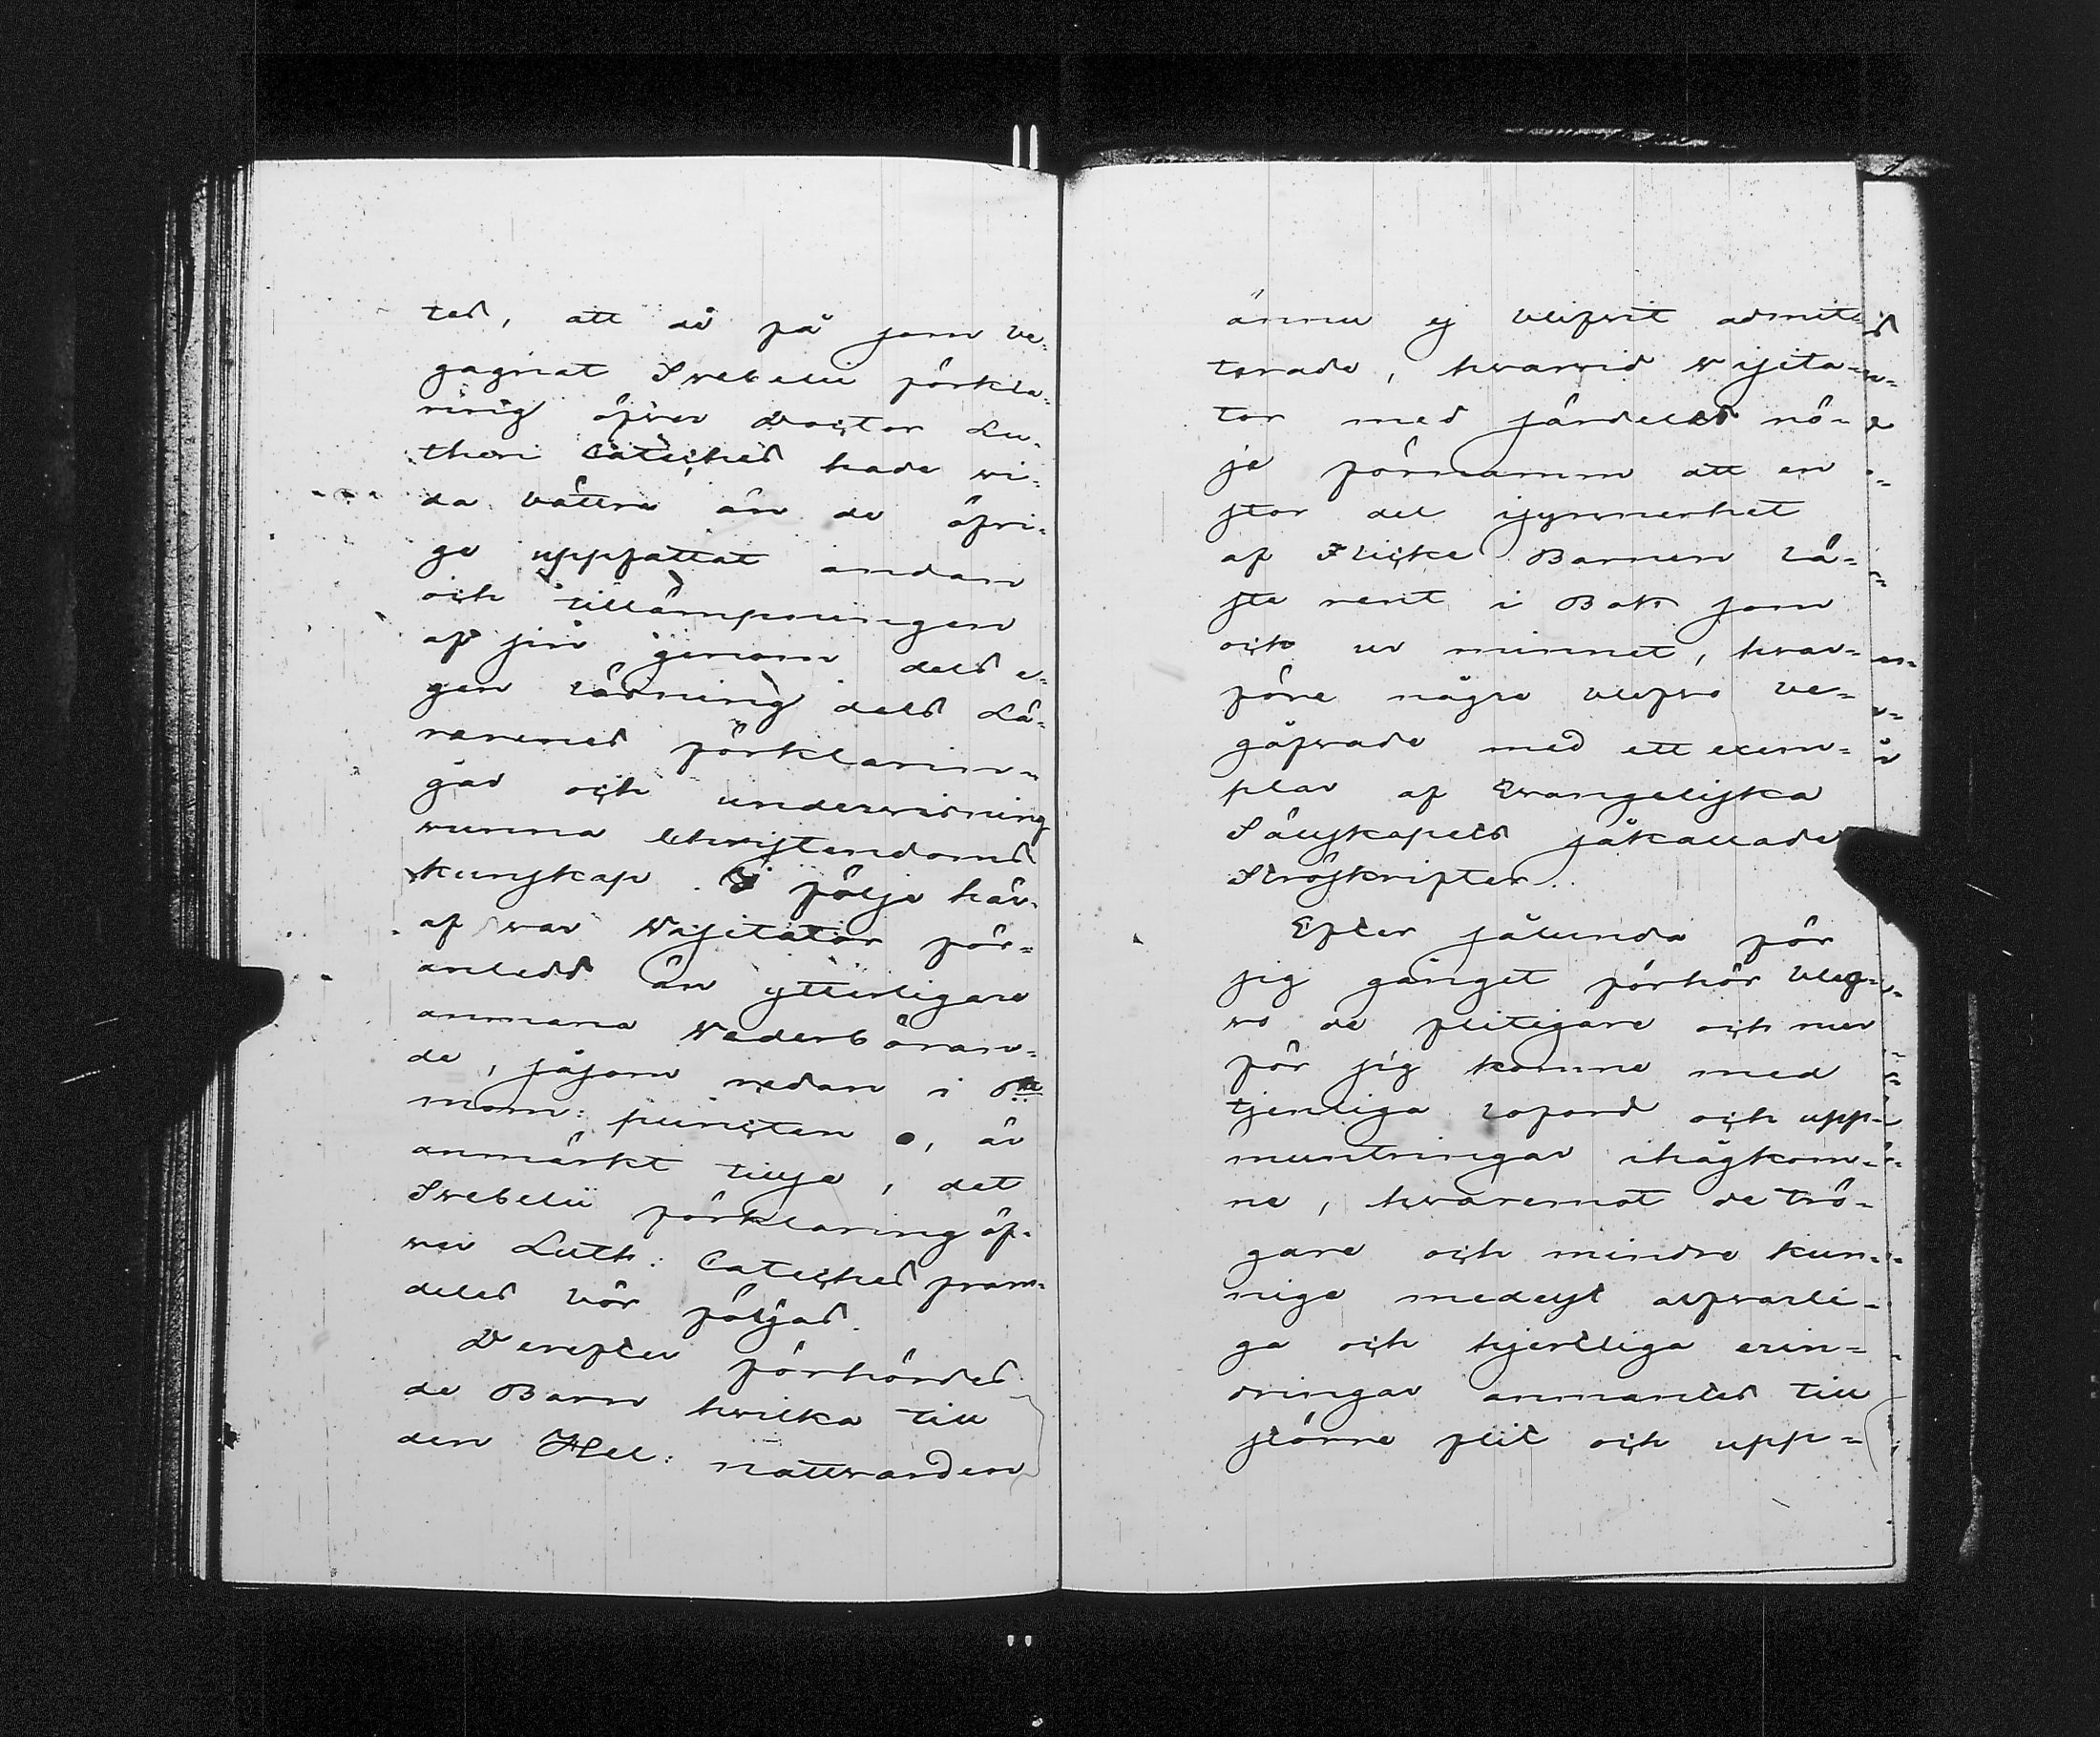 tes, att de på som be-
gagnat Svebelii förkla-
ring öfver Doctor Lu-
theri Cateches hade wi-
da bättre än de öfri-
ge uppfattat andan
och tillämpningen
af sin genom dels e-
gen läsning dels Lä-
rarenes förklarin-
gar och underwisning
wunna Christendoms
kunskap. I följe här-
af war Wisitator för-
anledd än ytterligare
anmana Wederböran-
de, såsom nedan i 8de
mom: puncten e, är
anmärkt tillse, det
Svebelii förklaring öf-
wer Luth: Cateches fram-
deles bör följas.
Derefter förhördes
de Barn hwilka till
den Hel: nattwarden
ännu ej blifwit admit-
terade, hwarwid Wisita-
tor med särdeles nö-
je förnamm att en
stor del isynnerhet
af Flicke Barnen lä-
ste rent i Bok som
ock ur minnet, hwar-
före några blefwo be-
gåfwade med ett exem-
plar af Evangeliska
Sällskapets såkallade
Ströskrifter.
Efter sålunda för
sig gånget förhör blef-
wo de flitigare och mer
för sig komne med
tjenliga loford och upp-
muntringar ihågkom-
ne, hwaremot de trö-
gare och mindre kun-
nige medelst alfwarli-
ga och hjertliga erin-
dringar anmantes till
större flit och upp-